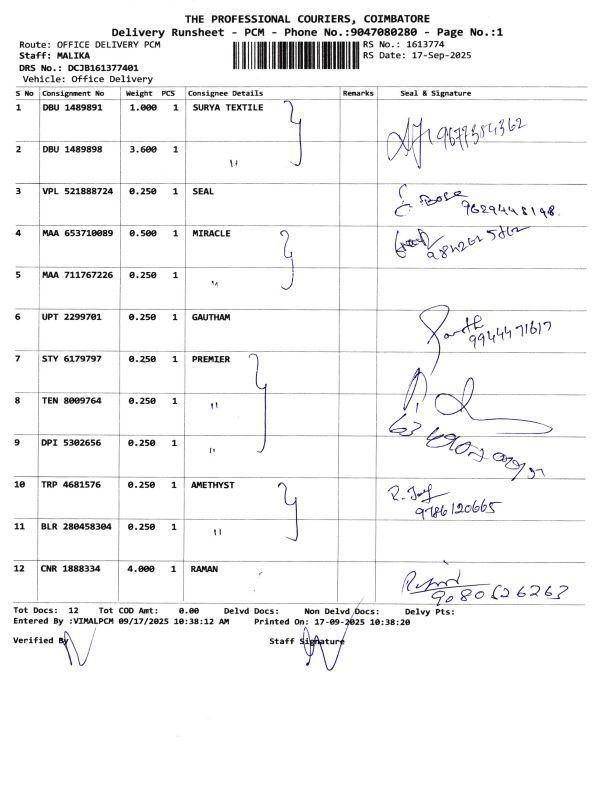 THE PROFESSIONAL COURIERS, COIMBATORE
Delivery Runsheet - PCM - Phone No.:9047080280 - Page No.:1
Route: OFFICE DELIVERY PCM RS No.: 1613774
Staff: MALIKA RS Date: 17-Sep-2025
DRS No.: DCJB161377401
Vehicle: Office Delivery
S No Consignment No Weight PCS Consignee Details Remarks Seal & Signature
1 DBU 1489891 1.000 1 SURYA TEXTILE
9677354362
2 DBU 1489898 3.600 1 "
3 VPL 521888724 0.250 1 SEAL Bose
9629448198.
4 MAA 653710089 0.500 1 MIRACLE
5 MAA 711767226 0.250 1 "
6 UPT 2299701 0.250 1 GAUTHAM
9944471617
7 STY 6179797 0.250 1 PREMIER
8 TEN 8009764 0.250 1 "
9 DPI 5302656 0.250 1 "
10 TRP 4681576 0.250 1 AMETHYST
9786120665
11 BLR 280458304 0.250 1 "
12 CNR 1888334 4.000 1 RAMAN
9080526263
Tot Docs: 12 Tot COD Amt: 0.00 Delvd Docs: Non Delvd Docs: Delvy Pts:
Entered By :VIMALPCM 09/17/2025 10:38:12 AM Printed On: 17-09-2025 10:38:20
Verified By Staff Signature